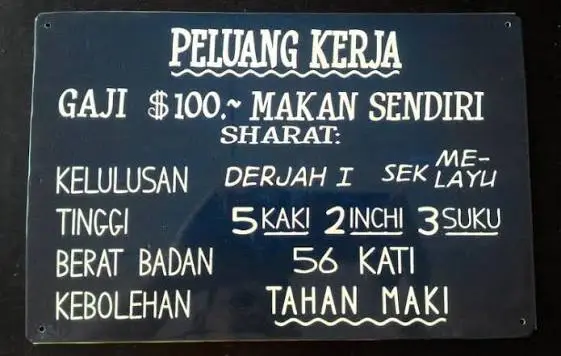 PELUANG KERJA
GAJI $100.~ MAKAN SENDIRI
SHARAT:
KELULUSAN DERJAH I SEK ME-
LAYU
TINGGI 5 KAKI 2 INCHI 3 SUKU
BERAT BADAN 56 KATI
KEBOLEHAN TAHAN MAKI